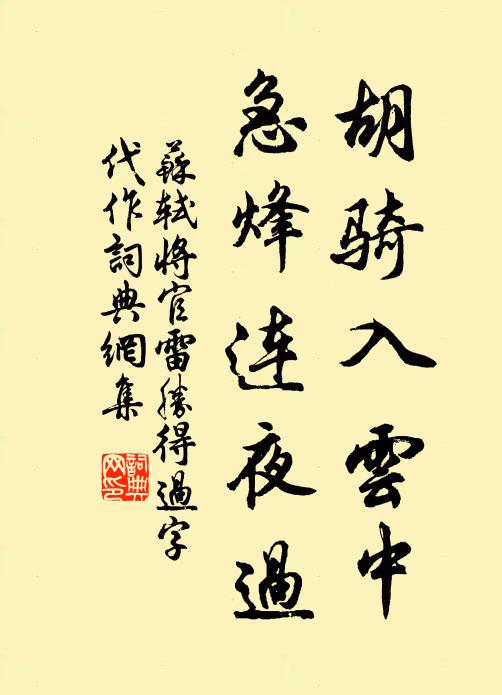 胡骑入雲中
急烽連夜過
蘇軾將官雷勝得過字
代作詞典網集
詞典
网印